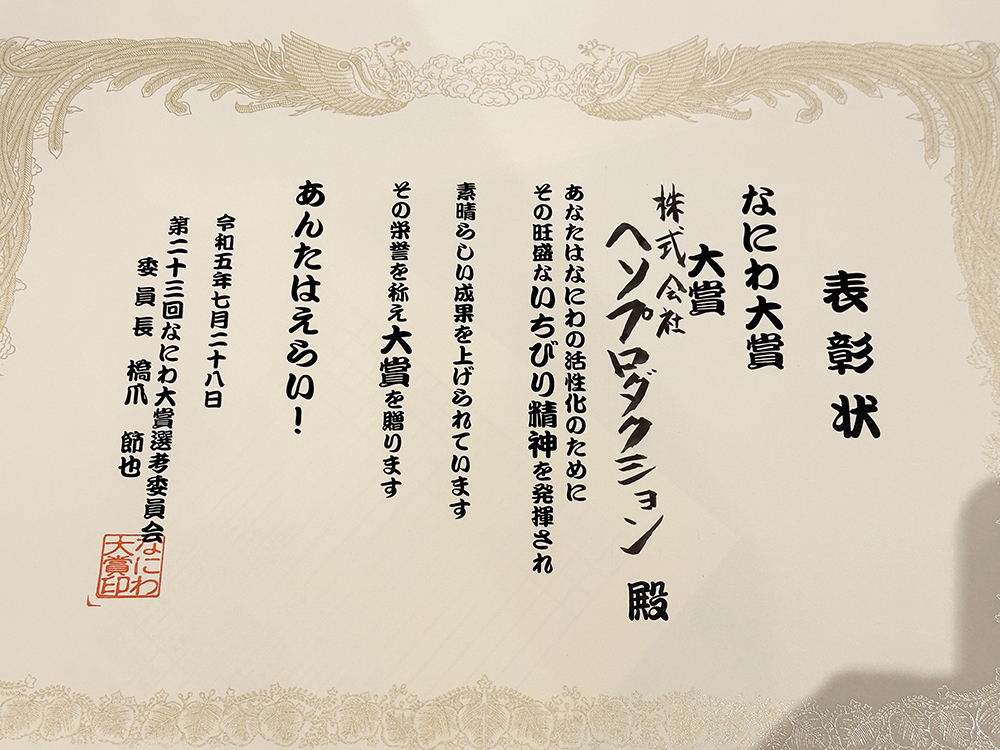 表彰状
なにわ大賞
大賞
株式会社
ヘソプロダクション 殿
あなたはなにわの活性化のために
その旺盛ないちびり精神を発揮され
素晴らしい成果を上げられています
その栄誉を称え大賞を贈ります
あんたはえらい！
令和五年七月二十八日
第二十三回なにわ大賞選考委員会
委員長 橋爪 節也
なにわ
大賞印